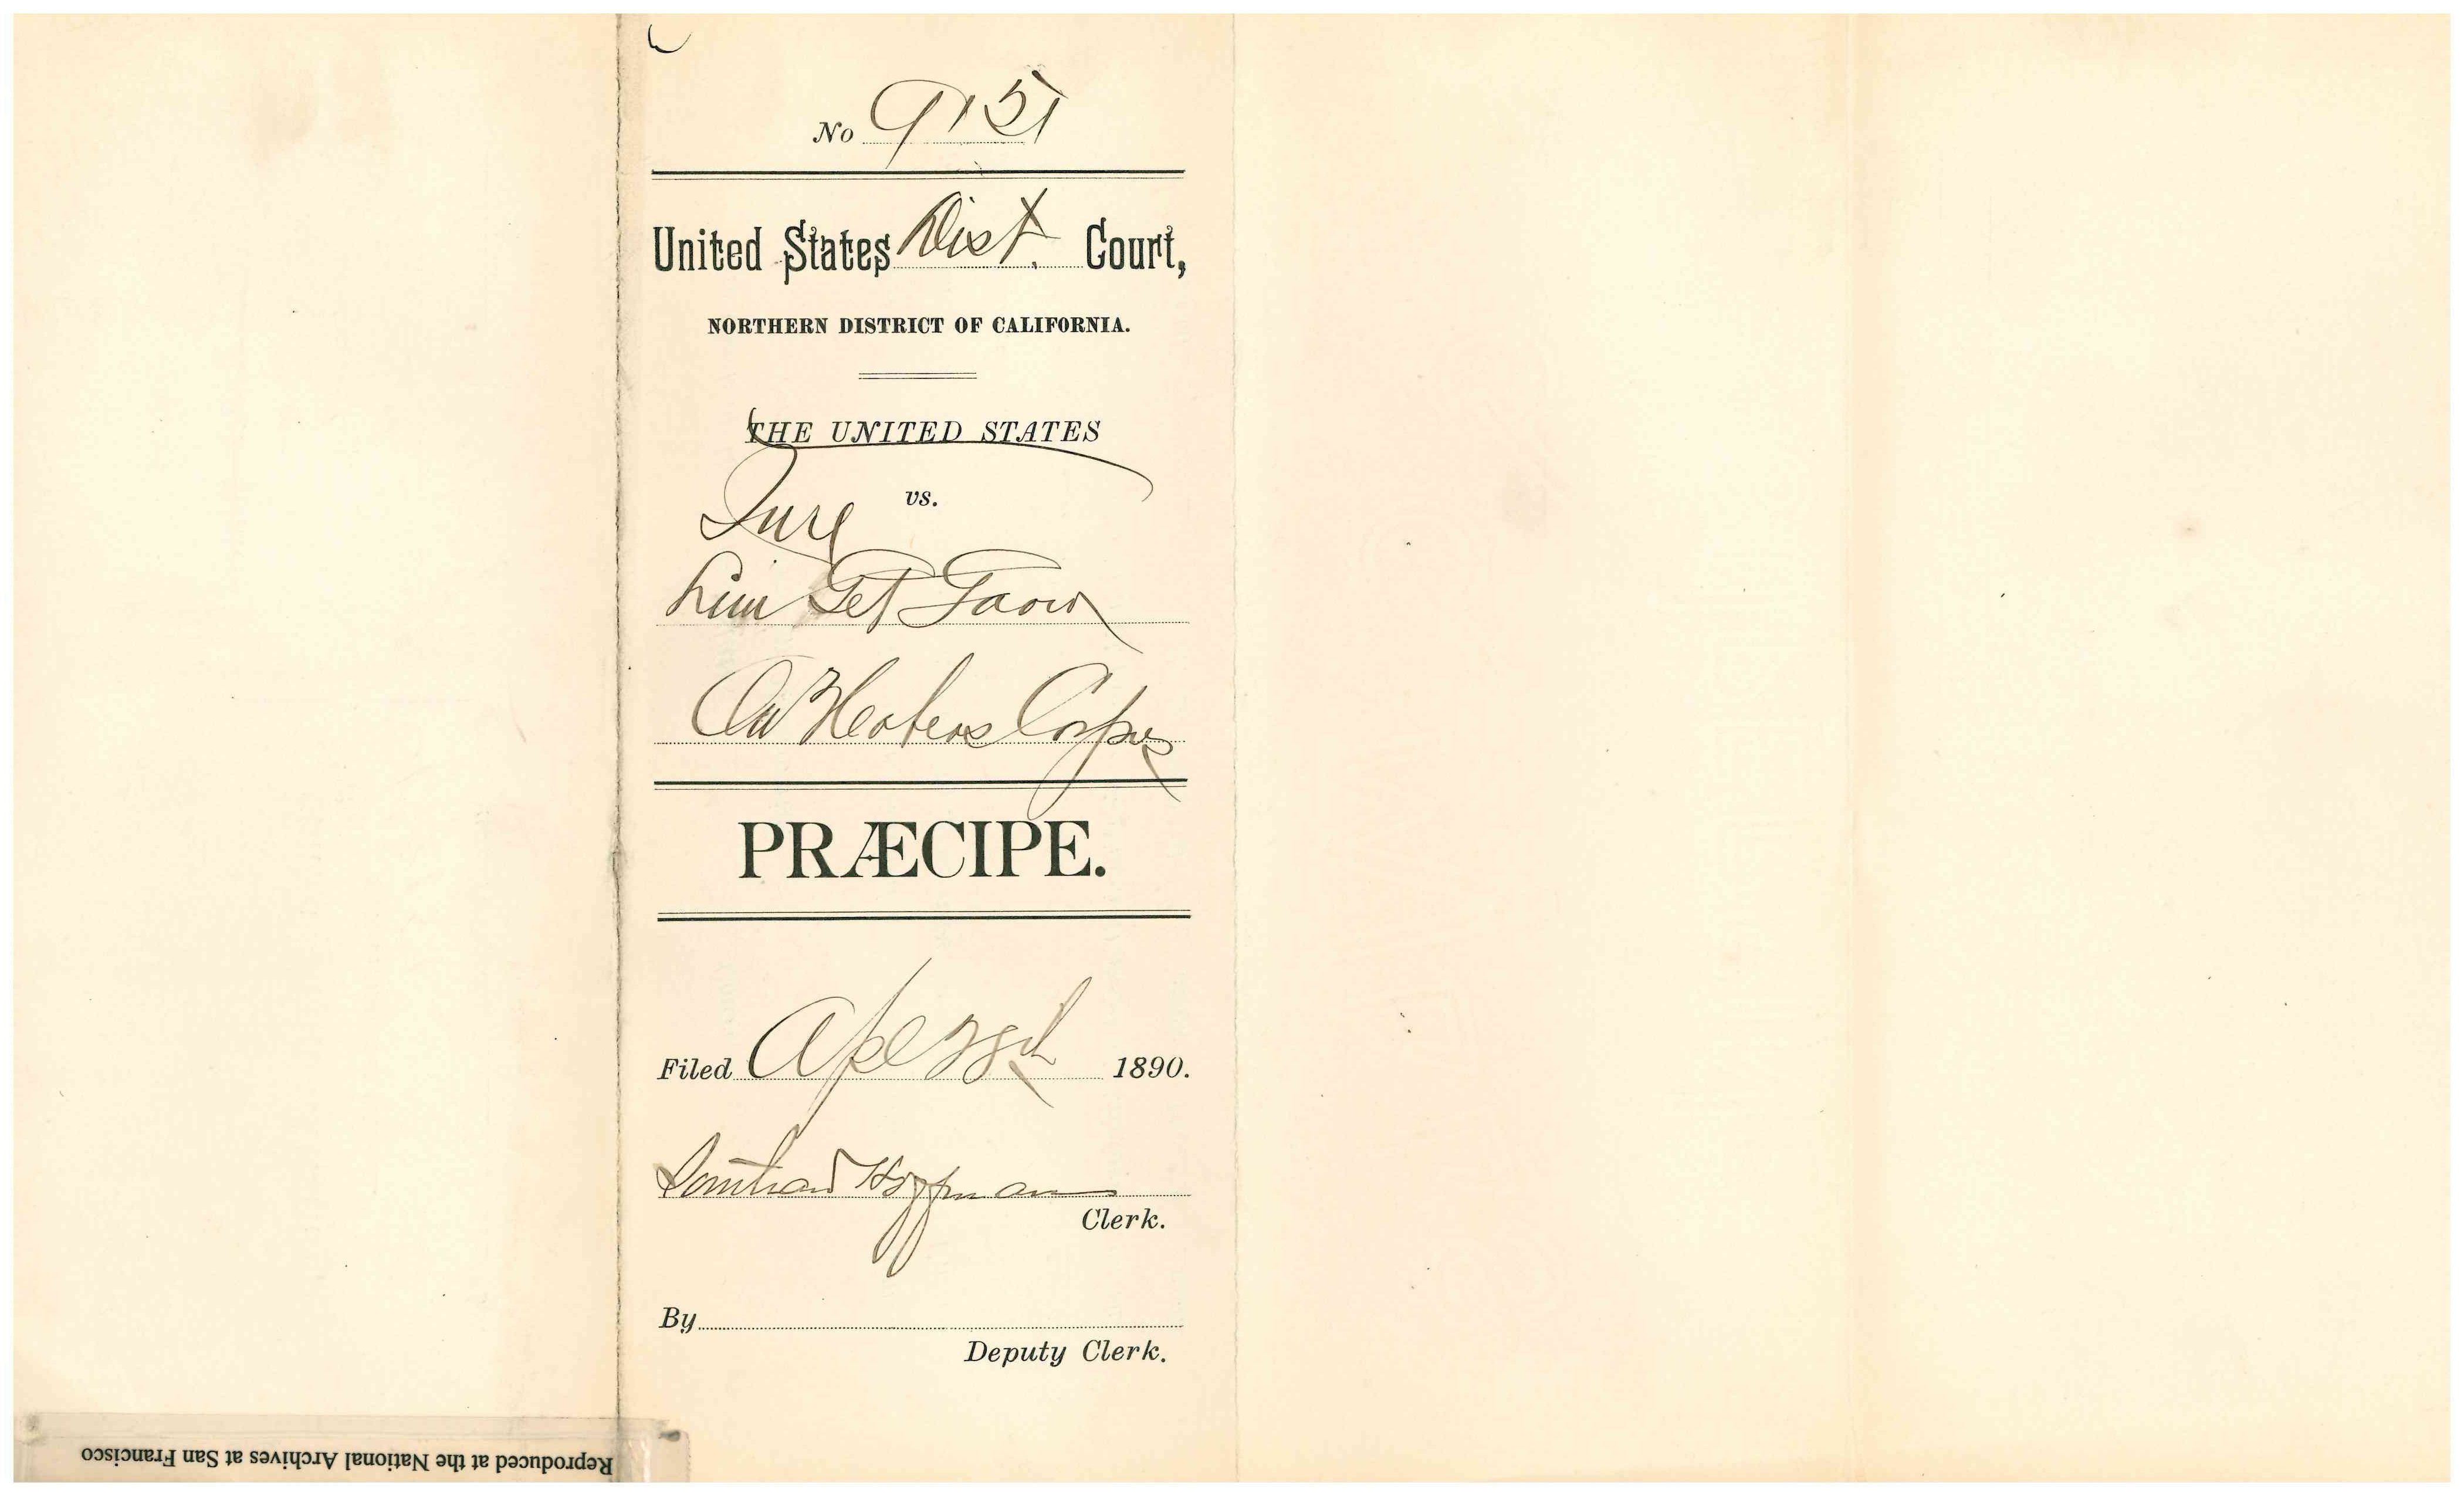 No 9151
United States Dist. Court,
NORTHERN DISTRICT OF CALIFORNIA.
THE UNITED STATES
vs.
In re
Lim Tet
On Habeas Corpus
PRÆCIPE.
Filed Apl 28th 1890.
Southard Hoffman
Clerk.
By
Deputy Clerk.
Reproduced at the National Archives at San Francisco